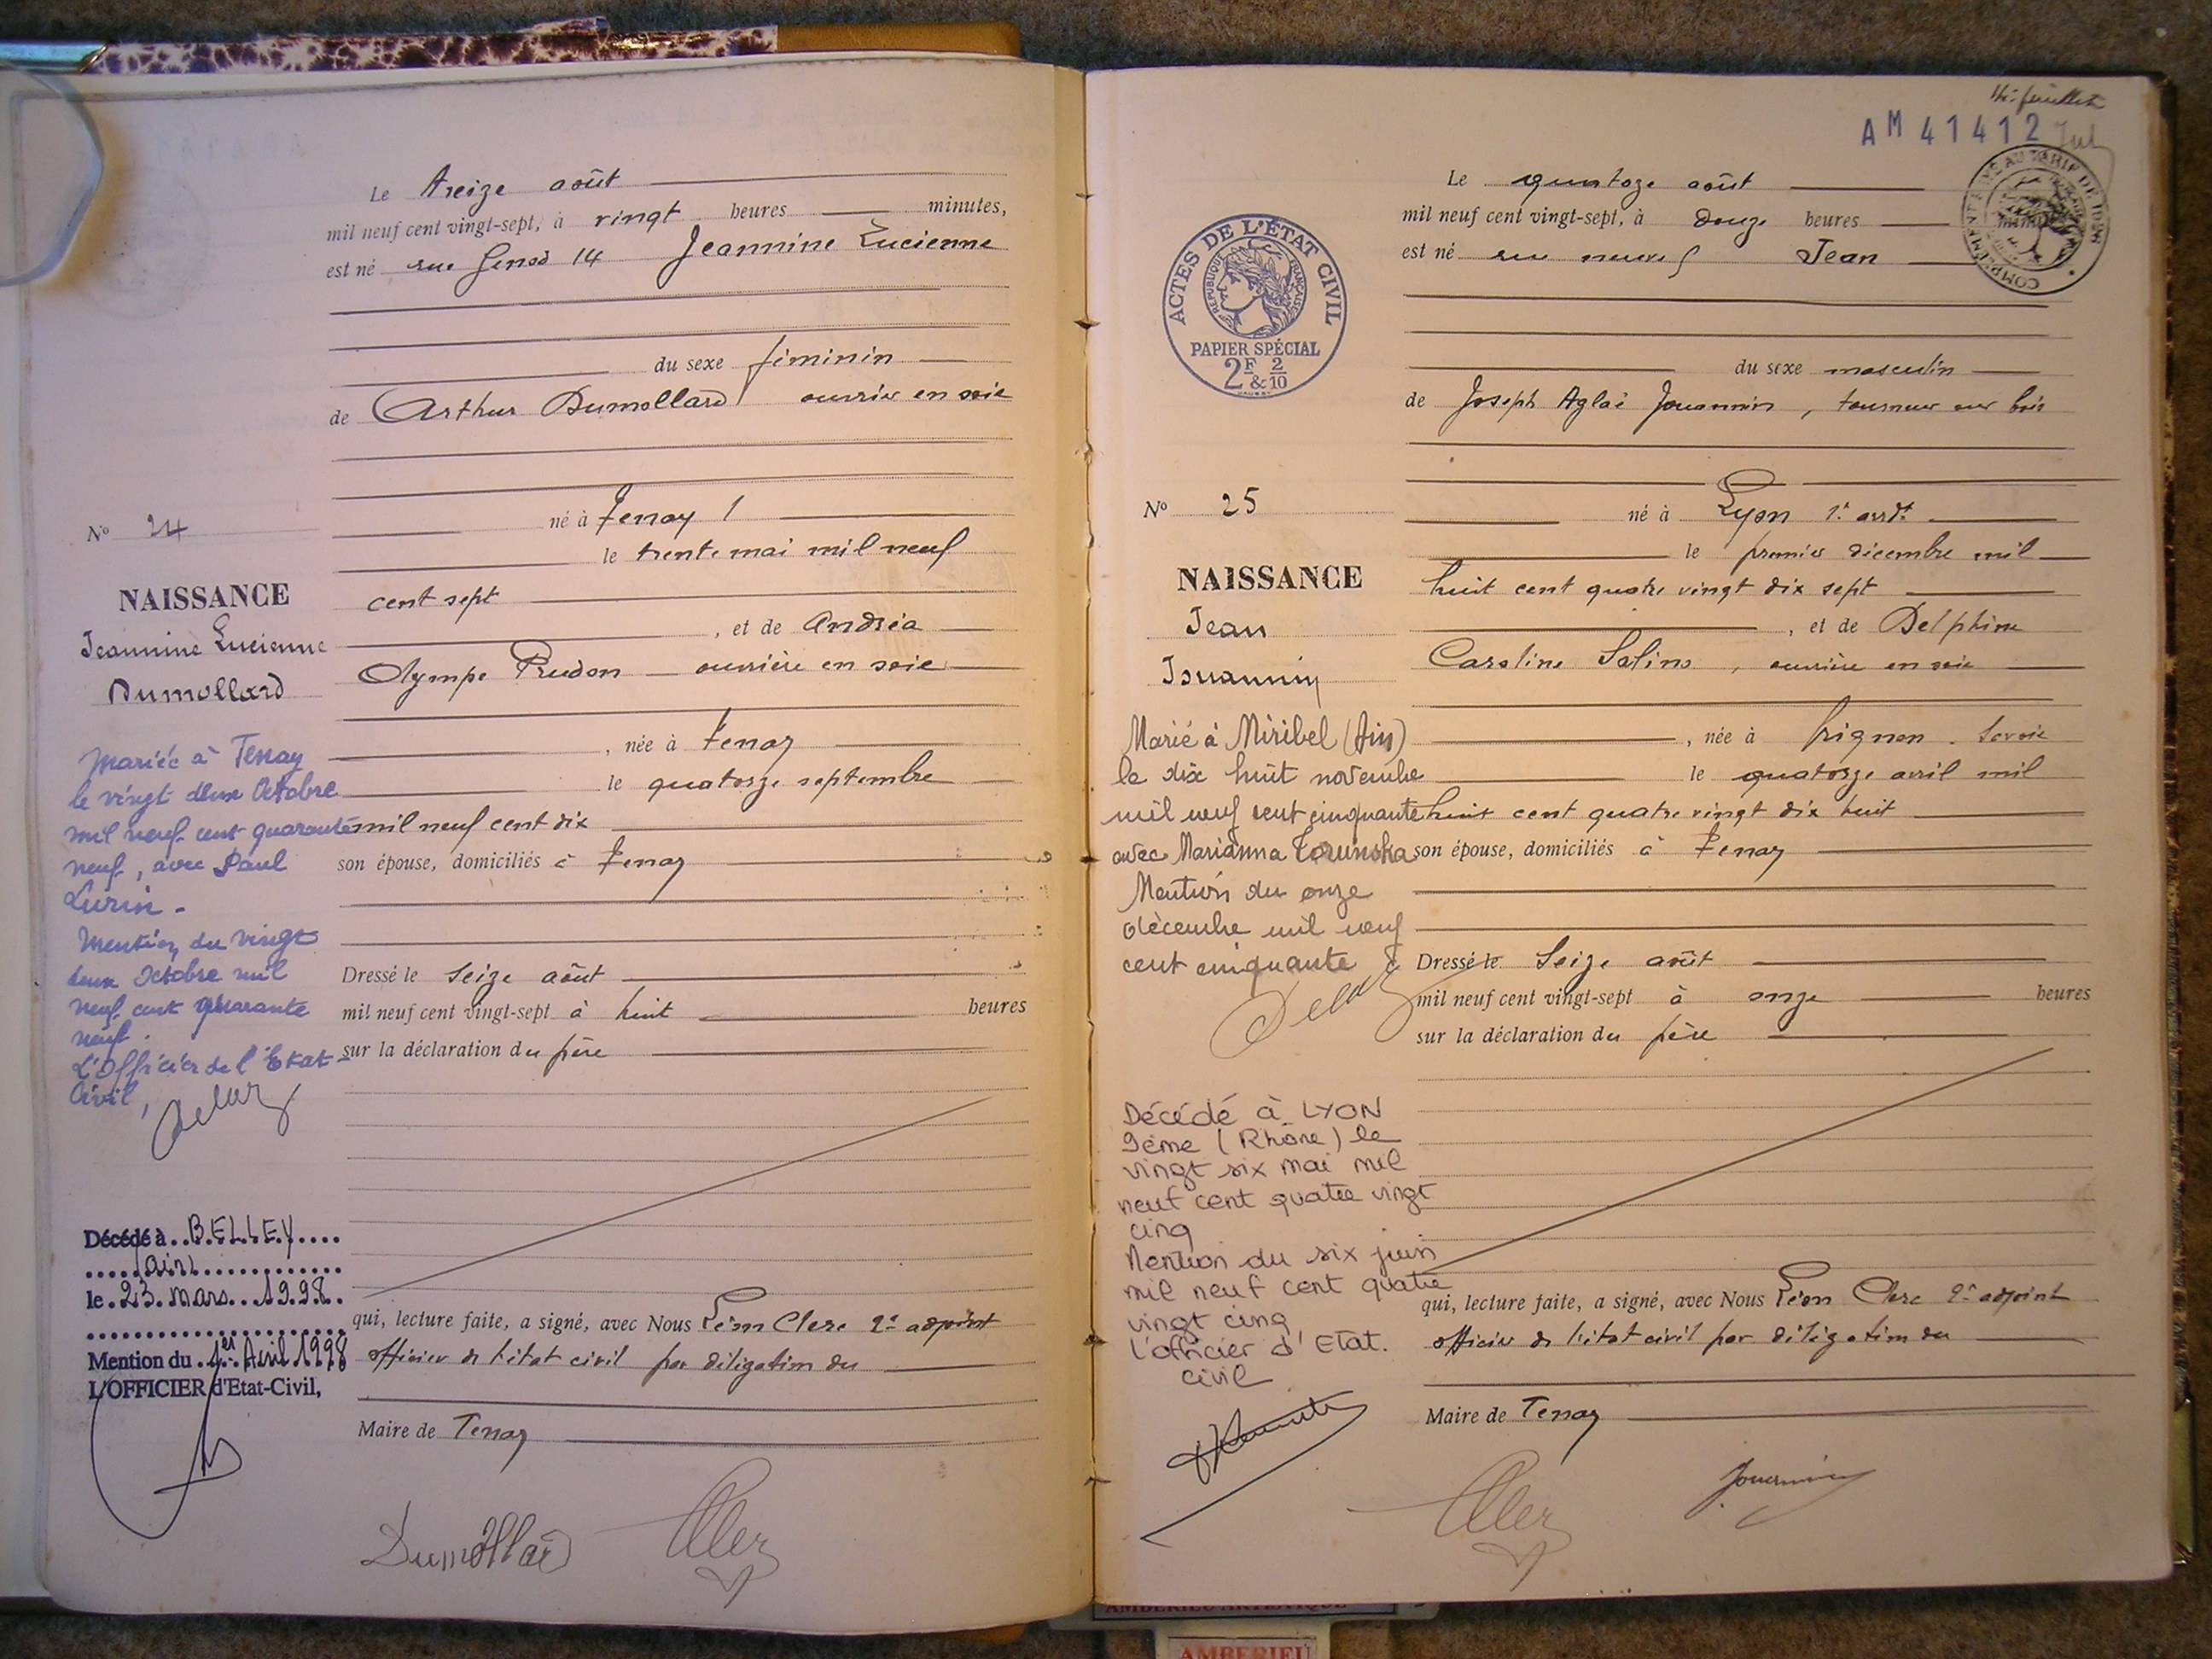 Le treize août
mil neuf cent vingt-sept, à vingt heures minutes,
est né rue Genod 14 Jeannine Lucienne
du sexe féminin
de Arthur Dumollard ouvrier en soie
né à Tenay
le trente mai mil neuf
cent sept
, et de Andréa
Olympe Prudon ouvrière en soie
, née à Tenay
le quatorze septembre
mil neuf cent dix
son épouse, domiciliés à Tenay
Dressé le seize août
mil neuf cent vingt-sept à huit heures
sur la déclaration du père
qui, lecture faite, a signé, avec Nous Léon Clerc 2e adjoint
officier de l'état civil par délégation du
Maire de Tenay
Dumollard
No 24
NAISSANCE
Jeannine Lucienne
Dumollard
Mariée à Tenay
le vingt deux Octobre
mil neuf cent quarante
neuf, avec Paul
Lurin.
Mention du vingt
deux Octobre mil
neuf cent quarante
neuf.
L'Officier de l'Etat-
Civil,
Décédé à BELLEY
(ain)
le 23 mars 1998
Mention du 1er Avril 1998
L'OFFICIER d'Etat-Civil,
14e feuillet
AM 41412
ACTES DE L'ÉTAT CIVIL
RÉPUBLIQUE FRANÇAISE
PAPIER SPÉCIAL
2F & 2/10
Le quatorze août
mil neuf cent vingt-sept, à douze heures
est né rue neuve Jean
du sexe masculin
de Joseph Aglaé Jouannin, tourneur sur bois
né à Lyon 1er arrdt
le premier décembre mil
huit cent quatre vingt dix sept
, et de Delphine
Caroline Salino, ouvrière en soie
, née à Grignon. Savoie
le quatorze avril mil
huit cent quatre vingt dix huit
son épouse, domiciliés à Tenay
Dressé le seize août
mil neuf cent vingt-sept à onze heures
sur la déclaration du père
qui, lecture faite, a signé, avec Nous Léon Clerc 2e adjoint
officier de l'état civil par délégation du
Maire de Tenay
Jouannin
No 25
NAISSANCE
Jean
Jouannin
Marié à Miribel (Ain)
le dix huit novembre
mil neuf cent cinquante
avec Marianna Torunska
Mention du onze
décembre mil neuf
cent cinquante
Décédé à LYON
9ème (Rhône) le
vingt six mai mil
neuf cent quatre vingt
cinq
Mention du six juin
mil neuf cent quatre
vingt cinq
L'officier d'Etat.
civil
AMBERIEU ARTISTIQUE
AMBERIEU